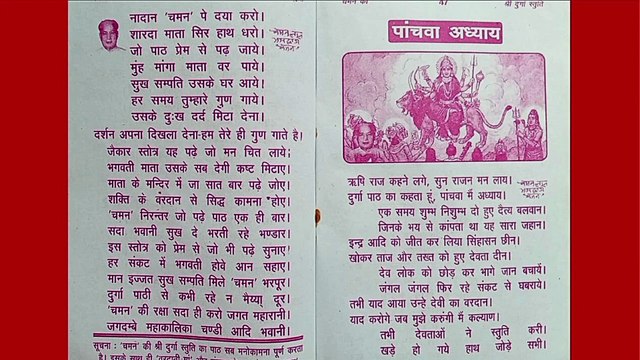 नादान 'चमन' पे दया करो।
शारदा माता सिर हाथ धरो।
जो पाठ प्रेम से पढ़ जाये।
मुंह मांगा माता वर पाये।
सुख सम्पति उसके घर आये।
हर समय तुम्हारे गुण गाये।
उसके दुःख दर्द मिटा देना।
दर्शन अपना दिखला देना-हम तेरे ही गुण गाते है।
जैकार स्तोत्र यह पढ़े जो मन चित लाये;
भगवती माता उसके सब देगी कष्ट मिटाए।
माता के मन्दिर में जा सात बार पढ़े जोए।
शक्ति के वरदान से सिद्ध कामना होए।
'चमन' निरन्तर जो पढ़े पाठ एक ही बार।
सदा भवानी सुख दे भरती रहे भण्डार।
इस स्तोत्र को प्रेम से जो भी पढ़े सुनाए।
हर संकट में भगवती होवे आन सहाए।
मान इज्जत सुख सम्पति मिले 'चमन' भरपूर।
दुर्गा पाठी से कभी रहे न मैय्या दूर।
'चमन' की रक्षा सदा ही करो जगत महारानी।
जगदम्बे महाकालिका चण्डी आदि भवानी।
सूचना : 'चमन' की श्री दुर्गा स्तुति का पाठ सब मनोकामना पूर्ण करता
है। इसके साथ ही
47
श्री दुर्गा स्तुति
पांचवा अध्याय
ऋषि राज कहने लगे, सुन राजन मन लाय।
दुर्गा पाठ का कहता हूं, पांचवा मैं अध्याय।
एक समय शुम्भ निशुम्भ दो हुए दैत्य बलवान।
जिनके भय से कांपता था यह सारा जहान।
इन्द्र आदि को जीत कर लिया सिंहासन छीन।
खोकर ताज और तख्त को हुए देवता दीन।
देव लोक को छोड़ कर भागे जान बचाये।
जंगल जंगल फिर रहे संकट से घबराये।
तभी याद आया उन्हे देवी का वरदान।
याद करोगे जब मुझे करुंगी मैं कल्याण।
तभी देवताओं ने स्तुति करी।
खड़े हो गये हाथ जोड़े सभी।